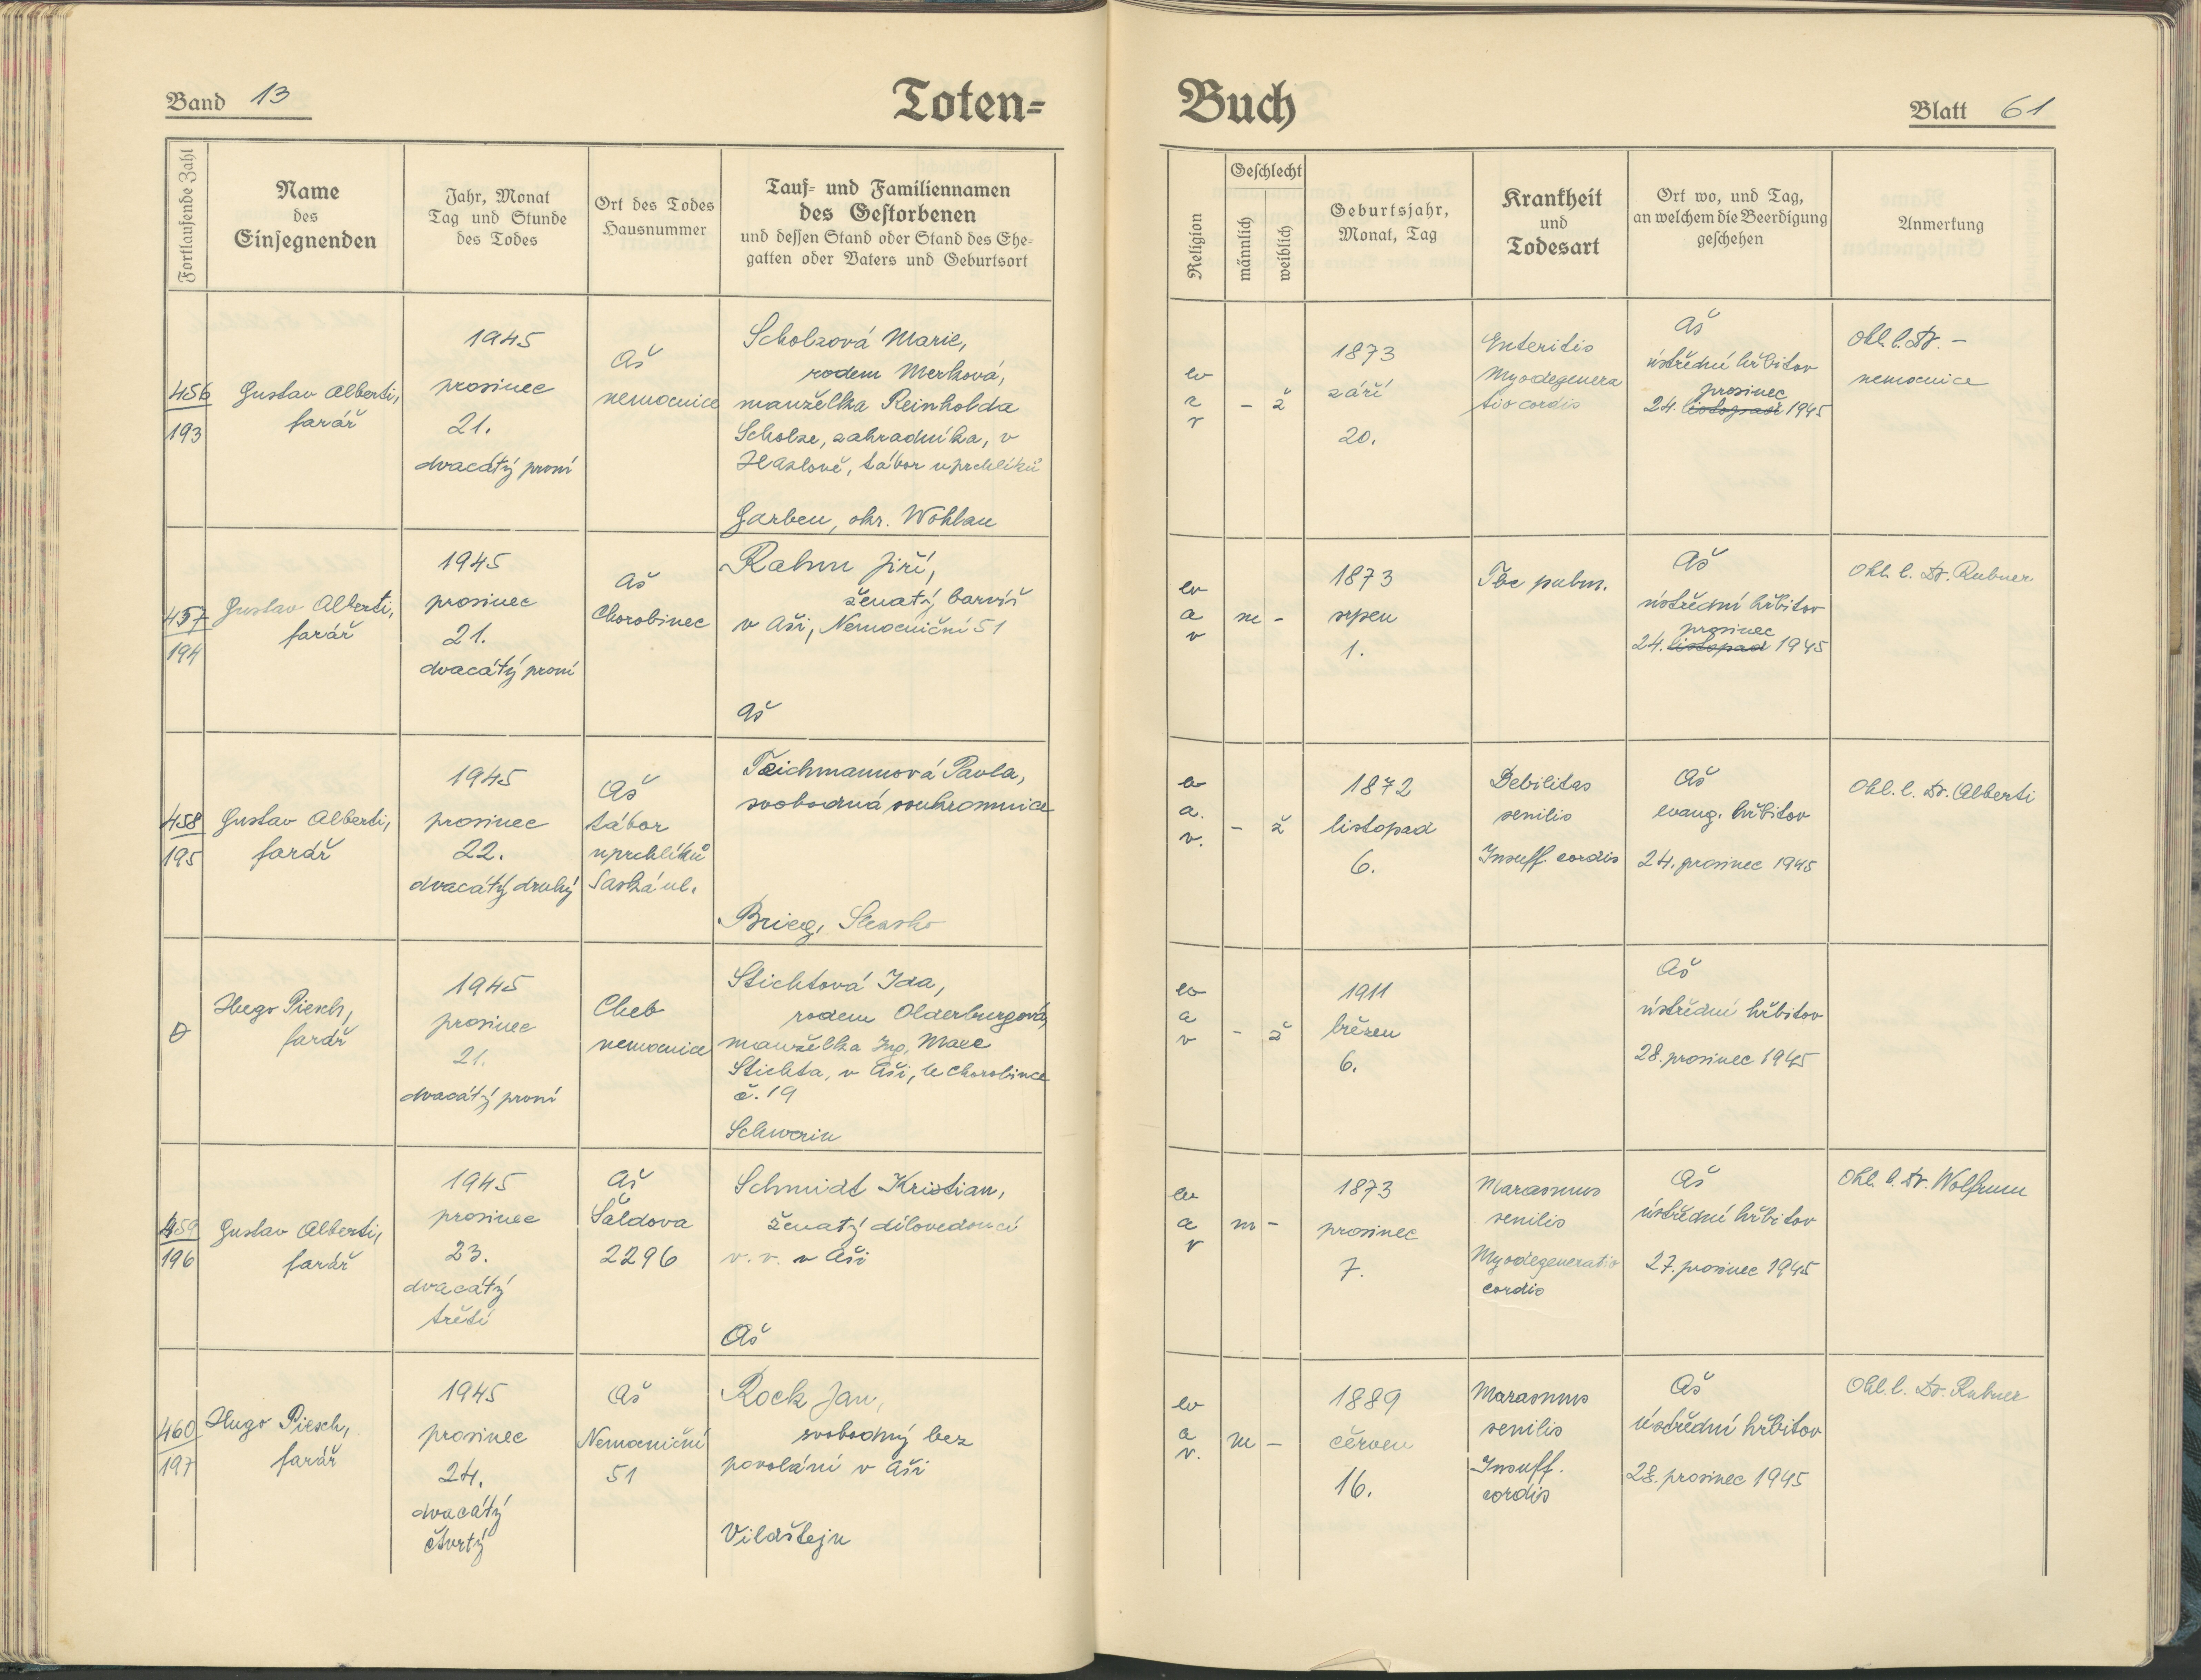 Band 13
Toten=
Buch
Blatt 61
Fortlaufende Zahl
Name
des
Einsegnenden
Jahr, Monat
Tag und Stunde
des Todes
Ort des Todes
Hausnummer
Tauf= und Familiennamen
des Gestorbenen
und dessen Stand oder Stand des Ehe=
gatten oder Vaters und Geburtsort
Religion
Geschlecht
männlich
weiblich
Geburtsjahr,
Monat, Tag
Krankheit
und
Todesart
Ort wo, und Tag,
an welchem die Beerdigung
geschehen
Anmerkung
456
193
Gustav Alberti,
farář
1945
prosinec
21.
dvacátý první
Aš
nemocnice
Scholzová Marie,
rodem Merková,
manželka Reinholda
Scholze, zahradníka, v
Hazlově, tábor uprchlíků
Garben, okr. Wohlau
ev
a
v
- ž
1873
září
20.
Enteritis
Myodegenera
tio cordis
Aš
ústřední hřbitov
prosinec
24. listopad 1945
Ohl. l. Dr. -
nemocnice
457
194
Gustav Alberti,
farář
1945
prosinec
21.
dvacátý první
Aš
Chorobinec
Rahm Jiří,
ženatý barvíř
v Aši, Nemocniční 51
Aš
ev
a
v
m -
1873
srpen
1.
Tbc pulm.
Aš
ústřední hřbitov
prosinec
24. listopad 1945
Ohl. l. Dr. Rubner
458
195
Gustav Alberti,
farář
1945
prosinec
22.
dvacátý druhý
Aš
tábor
uprchlíků
Saská ul.
Teichmannová Pavla,
svobodná soukromnice
Brieg, Slezsko
ev
a.
v.
- ž
1872
listopad
6.
Debilitas
senilis
Insuff. cordis
Aš
evang. hřbitov
24. prosinec 1945
Ohl. l. Dr. Alberti
Hugo Piesch,
farář
1945
prosinec
21.
dvacátý první
Cheb
nemocnice
Stichtová Ida,
rodem Olderburgová,
manželka Ing. Maxe
Stichta, v Aši, U Chorobince
č. 19
Schwerin
ev
a
v
- ž
1911
březen
6.
Aš
ústřední hřbitov
28. prosinec 1945
459
196
Gustav Alberti,
farář
1945
prosinec
23.
dvacátý
třetí
Aš
Šaldova
2296
Schmidt Kristian,
ženatý dílovedoucí
v. v. v Aši
Aš
ev
a
v
m -
1873
prosinec
7.
Marasmus
senilis
Myodegeneratio
cordis
Aš
ústřední hřbitov
27. prosinec 1945
Ohl. l. Dr. Wolfrum
460
197
Hugo Piesch,
farář
1945
prosinec
24.
dvacátý
čtvrtý
Aš
Nemocniční
51
Rock Jan,
svobodný bez
povolání v Aši
Vildštejn
ev
a
v.
m -
1889
červen
16.
Marasmus
senilis
Insuff.
cordis
Aš
ústřední hřbitov
28. prosinec 1945
Ohl. l. Dr. Rubner